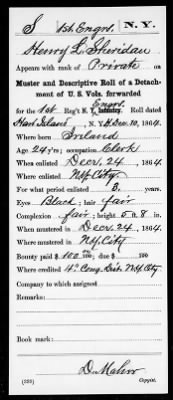 S | 1st Engrs. | N.Y.
Henry L. Sheridan
Appears with rank of Private on
Muster and Descriptive Roll of a Detach-
ment of U. S. Vols. forwarded
Engrs.
for the 1st Reg't N. Y. Infantry. Roll dated
Hart Island N. Y. H. Dec. 10, 1864.
Where born Ireland
Age 24 y'rs; occupation Clerk
When enlisted Decr. 24, 1864.
Where enlisted N.Y. City
For what period enlisted 3. years.
Eyes Black; hair fair
Complexion fair; height 5 ft. 8 in.
When mustered in Decr. 24, 1864.
Where mustered in N.Y. City
Bounty paid $ 100 00/100; due $ 100
Where credited 4" Cong. Dist. N.Y. City
Company to which assigned
Remarks:
Book mark:
D. Mahon
(339) Copyist.